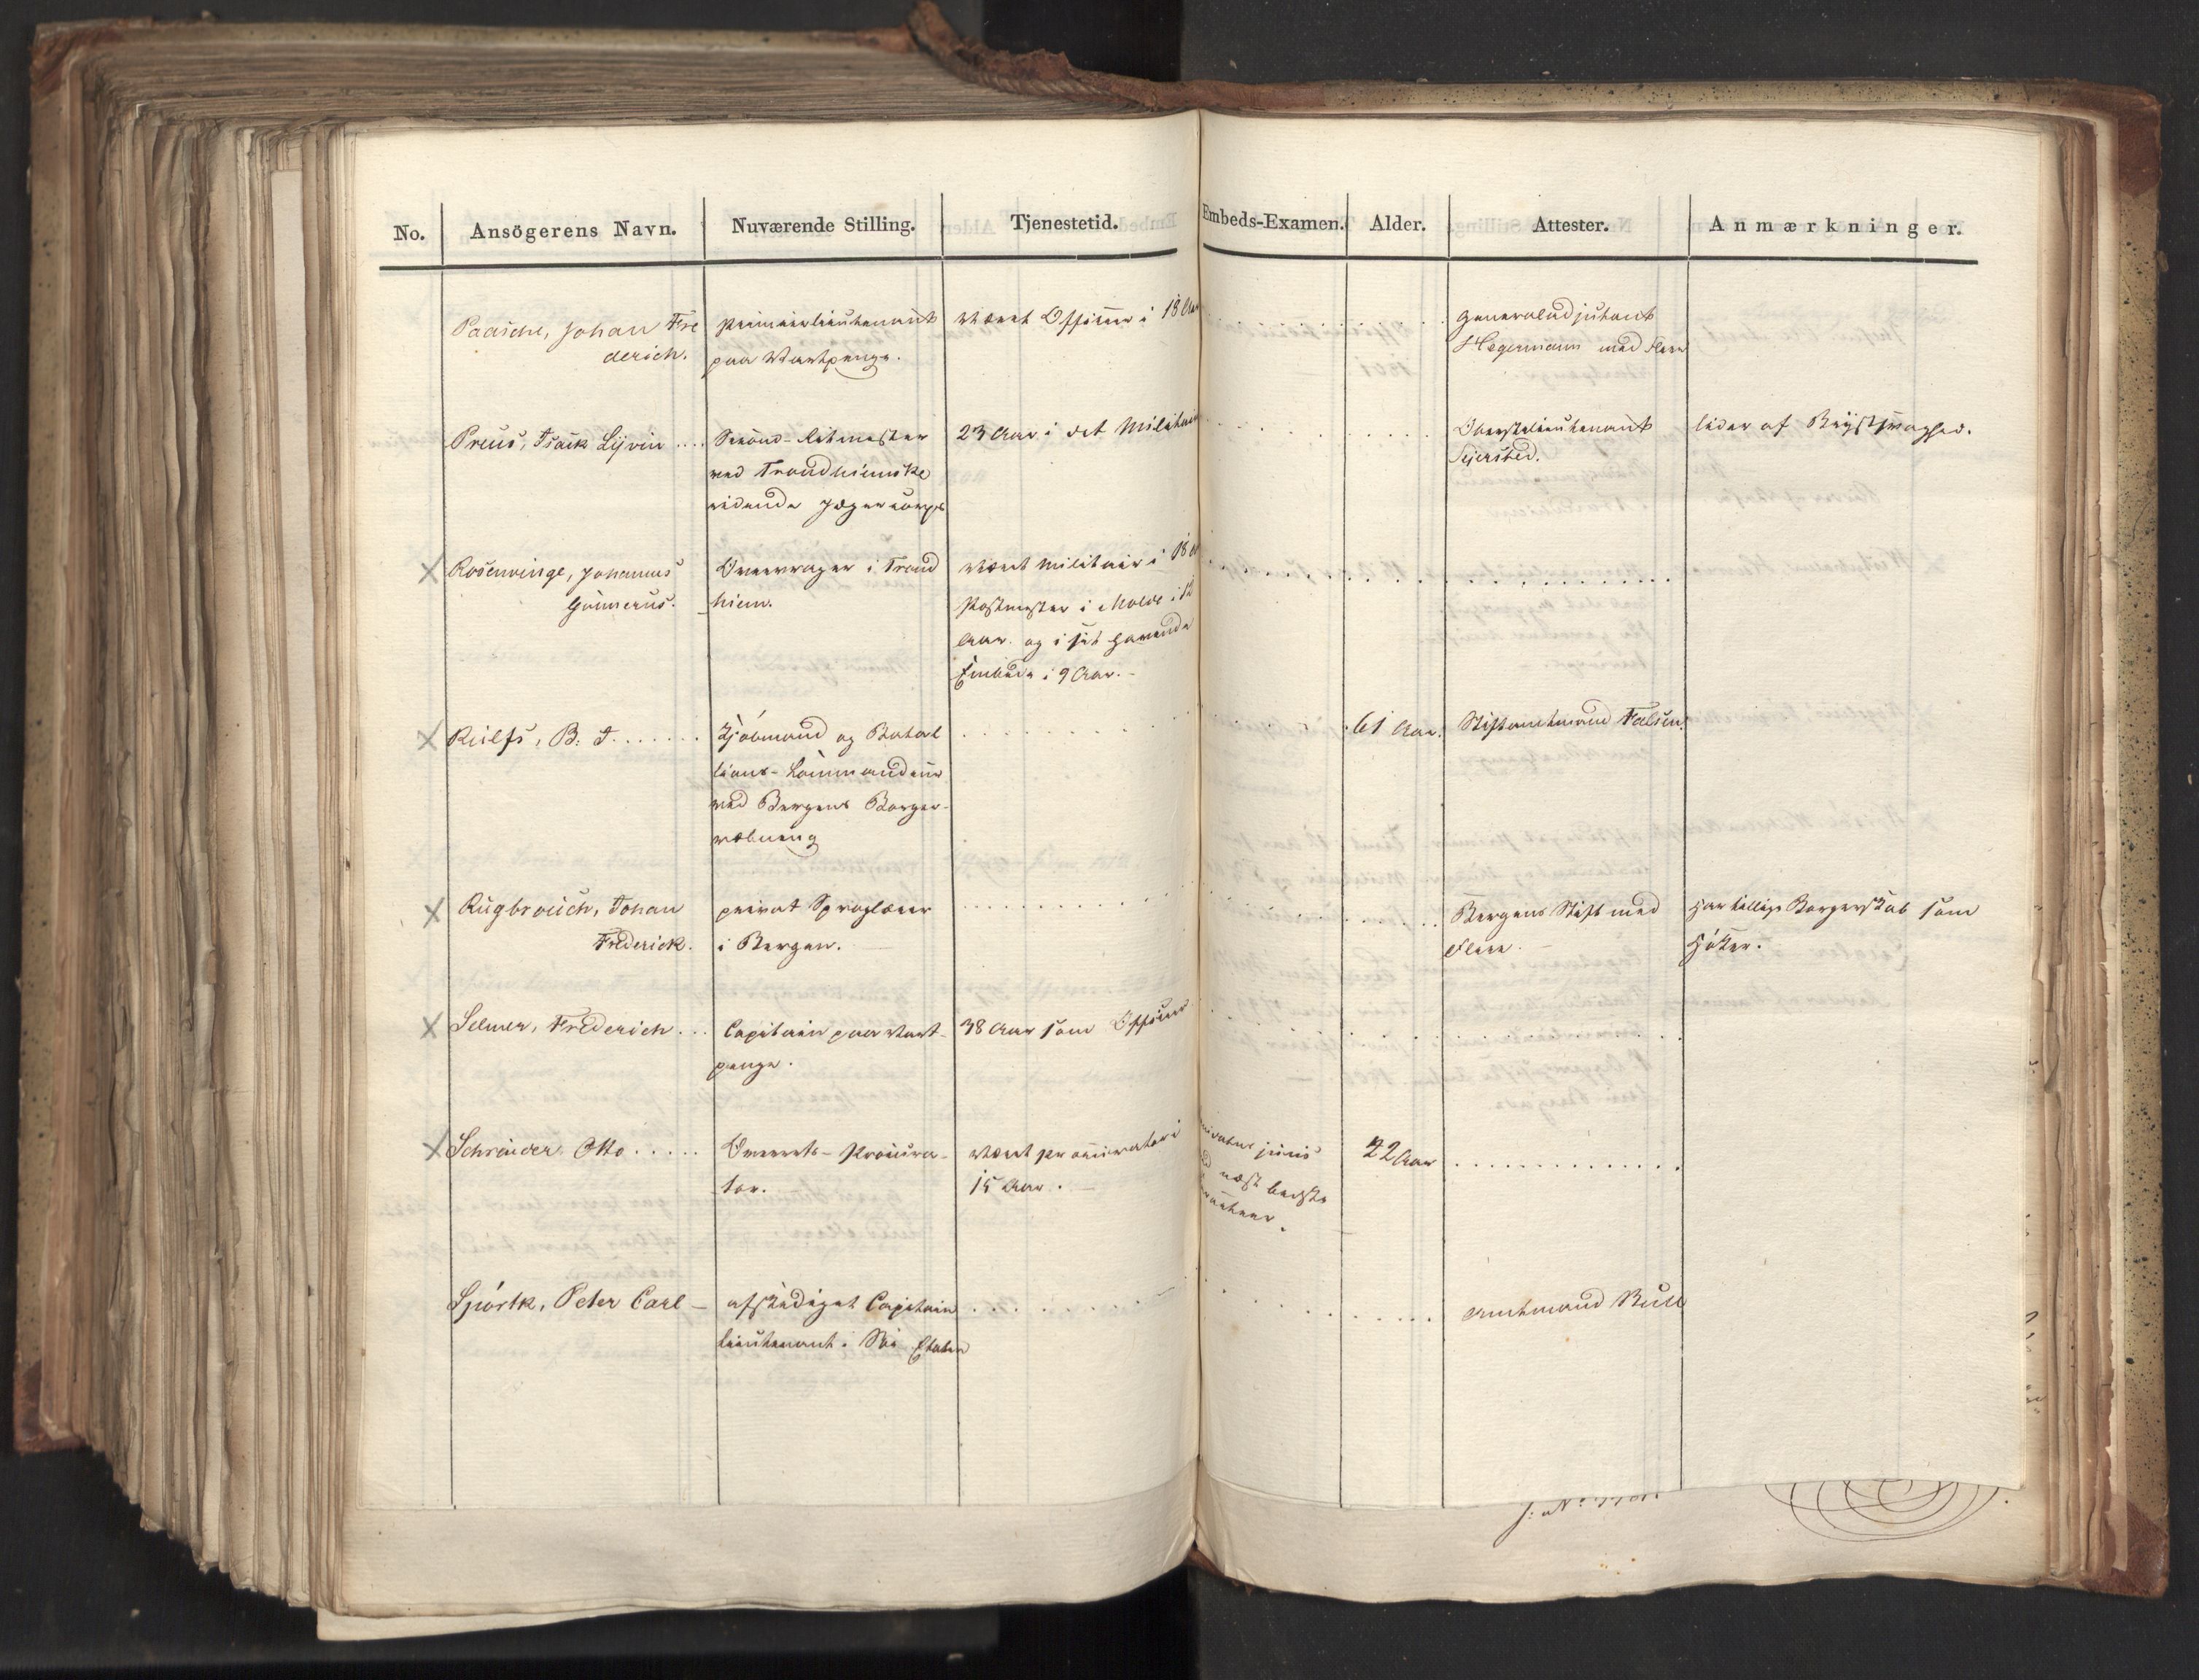 No. Ansögerens Navn. Nuværende Stilling. Tjenestetid. Embeds-Examen. Alder. Attester. Anmærkninger.
Paasche, Johan Fre
derich.
Premierlieutenant
paa Vartpenge.
været Officeer i 18 Aar
Generaladjutant
Hegermann med Flere
Preus, Isack Lyvin ....
Second-Ritmester
ved Trondhiemske
ridende Jægercorps
23 Aar i det Militaire
Oberstelieutenant
Sejersted.
lider af Brystsvaghed.
X Rosenvinge, Johannes
Gunnerus.
Overvrager i Trond
hiem.
været Militair i 18
Postmester i Molde i 12
Aar. og i sit havende
Embede i 9 Aar.
X Rülfs, B. J. ......
Kjøbmand og Batal
lions-Commandeur
ved Bergens Borger-
væbning
61 Aar.
Stiftamtmand Falsen.
X Rugbrouch, Johan
Frederick.
privat Sproglærer
i Bergen.
Bergens Stift med
Flere.
har tillige Borgerskab som
Høker.
X Selmer, Frederich ...
Capitain paa Vart-
penge.
38 Aar som Officeer
X Schrøder, Otto .....
Overrets-Procura-
tor.
været Procurator i
15 Aar.
juris
næst bedste
42 Aar
Spörck, Peter Carl –
afskediget Capitain
lieutenant i Søe Etaten
Amtmand Bull